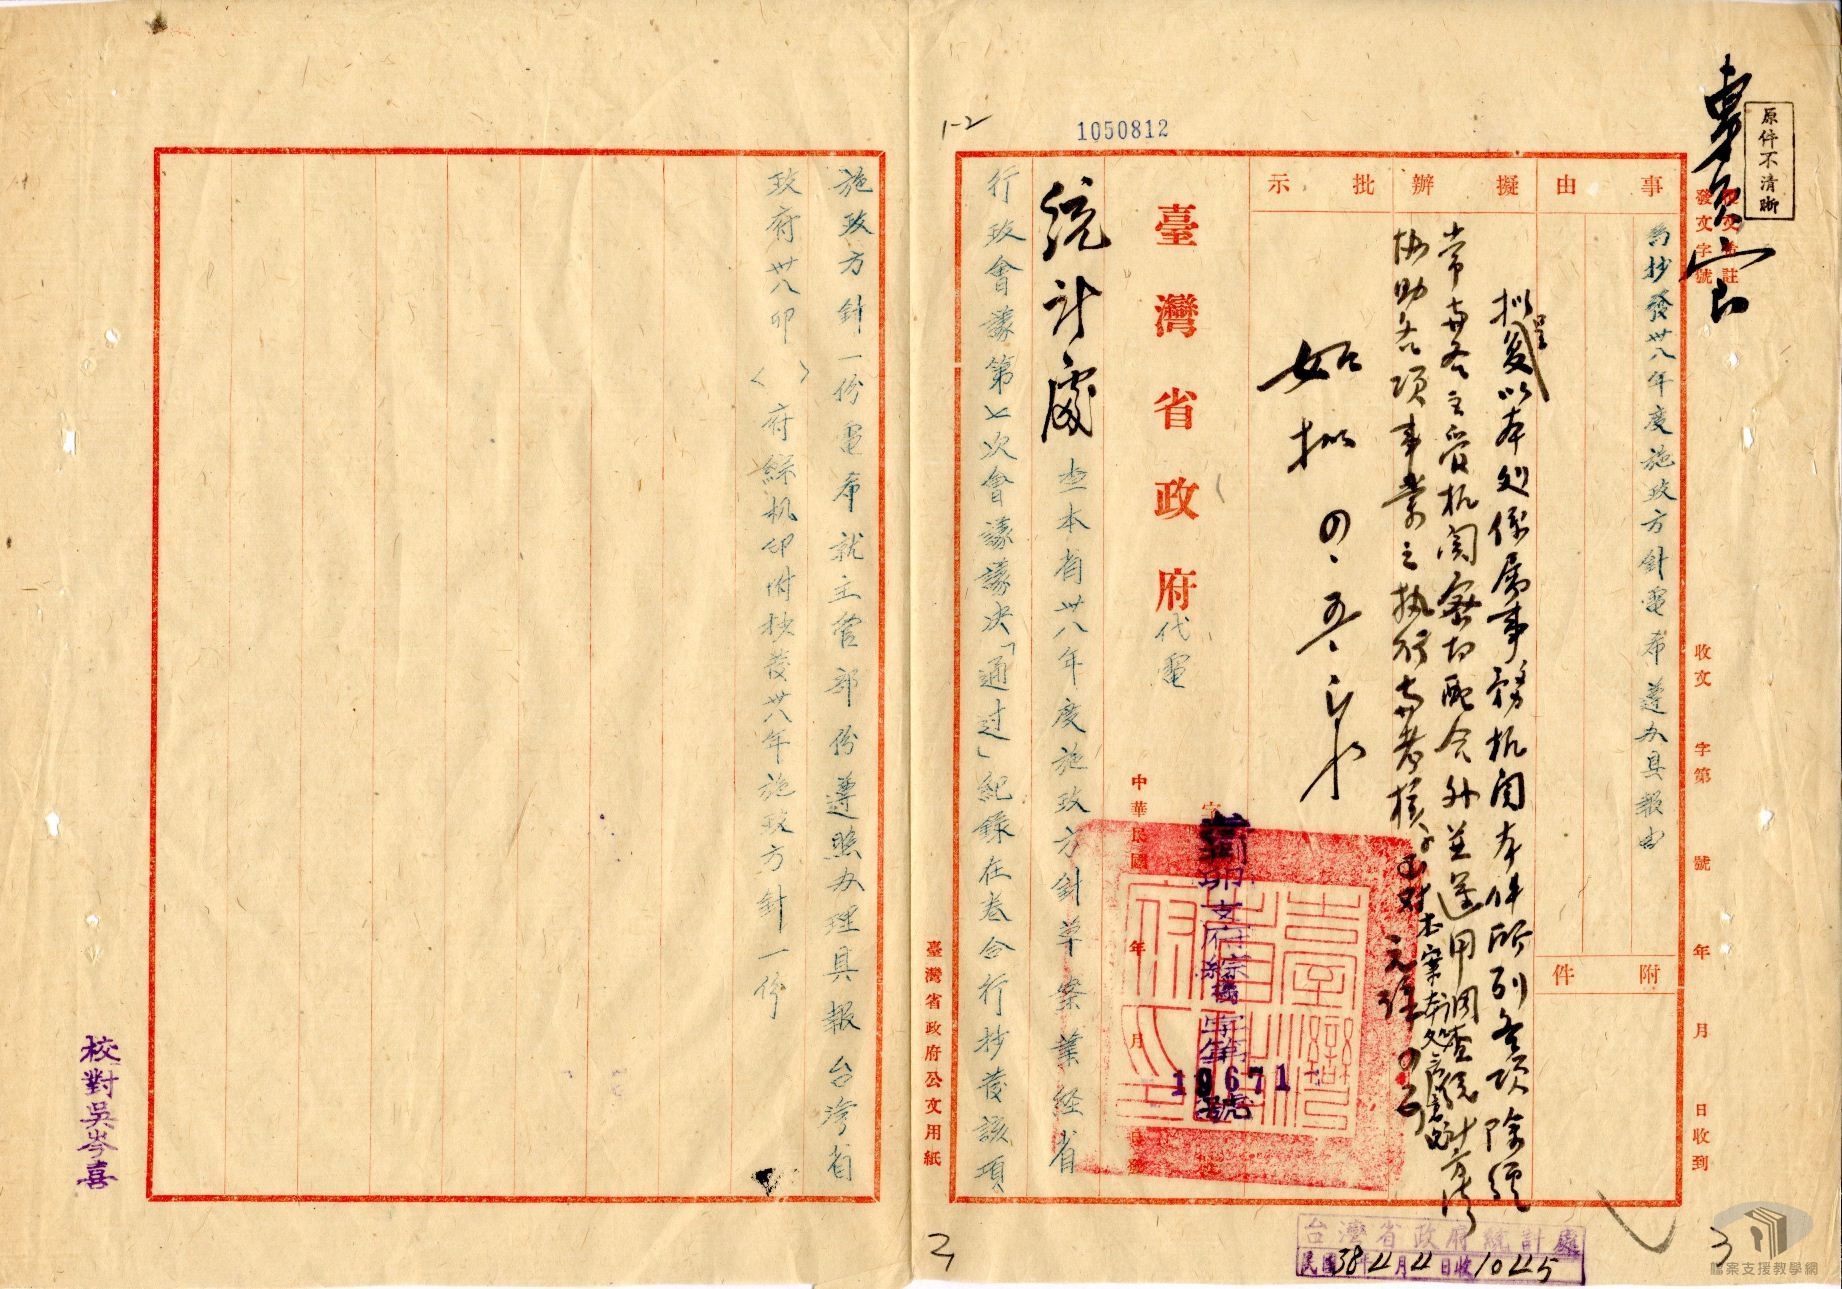 原件不清晰
1-2
1050812
收文字第號年月日收到
事由
為抄發卅八年度施政方針電希遵办具報由
附件
擬辦
拟呈復以本処係屬事務机関本件所列各項除經
常與各主管机関密切配合外並運用調查統計方法
協助各項事業之執行與考核
批示
如拟
臺灣省政府代電
中華民國年月
府綜機字第
10671
號
統計處
查本省卅八年度施政方針草案業經省
行政會議第七次會議議决「通过」紀錄在卷合行抄發該項
施政方針一份電希就主管部份遵照办理具報台灣省
政府卅八卯〈 〉府綜机印附抄發卅八年施政方針一份
臺灣省政府公文用紙
校對吳岑喜
台灣省政府統計處
民國38年4月4日收1045
2
3
檔案支援教學網